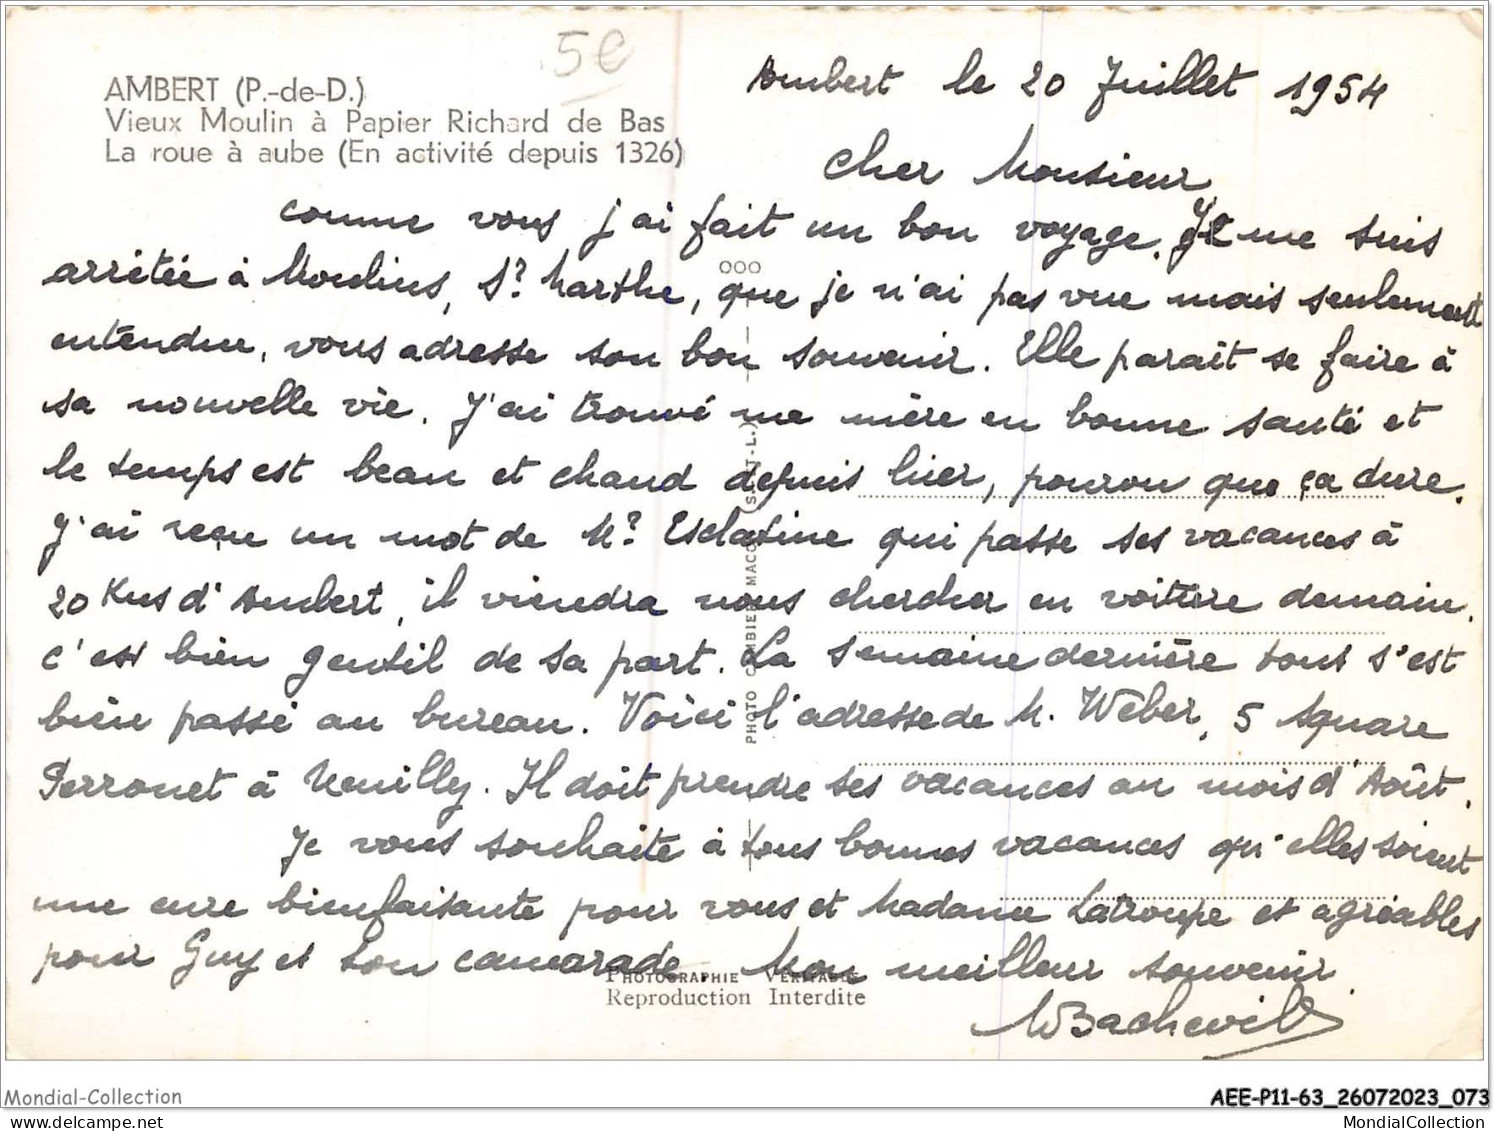 5€
AMBERT (P.-de-D.)
Vieux Moulin à Papier Richard de Bas
La roue à aube (En activité depuis 1326)
Ambert le 20 Juillet 1954
Cher Monsieur
comme vous j'ai fait un bon voyage. Je me suis
arrêtée à Moulins, Sr Marthe, que je n'ai pas vue mais seulement
entendue, vous adresse son bon souvenir. Elle paraît se faire à
sa nouvelle vie. J'ai trouvé ma mère en bonne santé et
le temps est beau et chaud depuis hier, pourvu que ça dure.
J'ai reçu un mot de Mr Esclatine qui passe ses vacances à
20 Kms d'Ambert, il viendra nous chercher en voiture demain.
c'est bien gentil de sa part. La semaine dernière tout s'est
bien passé au bureau. Voici l'adresse de M. Weber, 5 Square
Perronet à Neuilly. Il doit prendre ses vacances au mois d'Août.
Je vous souhaite à tous bonnes vacances qu'elles soient
une cure bienfaisante pour vous et Madame Latroupe et agréables
pour Guy et son camarade Mon meilleur souvenir
MBachevil
PHOTO COMBIER MACON (S.-ET-L.)
PHOTOGRAPHIE VÉRITABLE
Reproduction Interdite
Mondial-Collection
AEE-P11-63_26072023_073
www.mondialcollection.net
MondialCollection